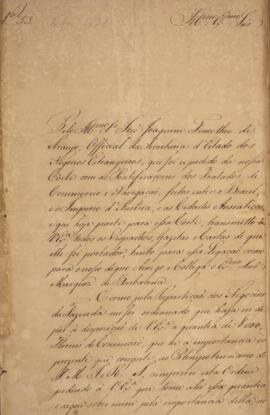 Nº 53
Illmo. Exmo. Snr.
Pelo Illmo. Sr. José Joaquim Timotheo de
Araujo, Official da Secretaria d'Estado dos
Negocios Estrangeiros, que foi expedido de nossa
Corte com as Ratificaçoens dos Tratados de
Commercio e Navegação, feitos entre o Brazil,
e o Imperio d'Austria, e as Cidades Anseaticas,
e que hoje parte para essa Corte, transmitto á
V. Exa. todos os Despachos, Gazetas e Cartas de que
elle foi portador, tanto para essa Legação como
para o nosso digno Amigo e Collega o Exmo. Snr.
Marquez de Barbacena.
Como pela Repartição dos Negocios
da Fazenda me foi ordenado que haja de
pôr á disposição de V. Exa. a quantia de
Florins de Convenção, que he a importancia do
presente que compete ao Plenipotenciario de
S. M. I. e R. A., cumprirei esta Ordem
pedindo á V. Exa. que tome até essa quantia
e saque sobre mim pela importancia della, no